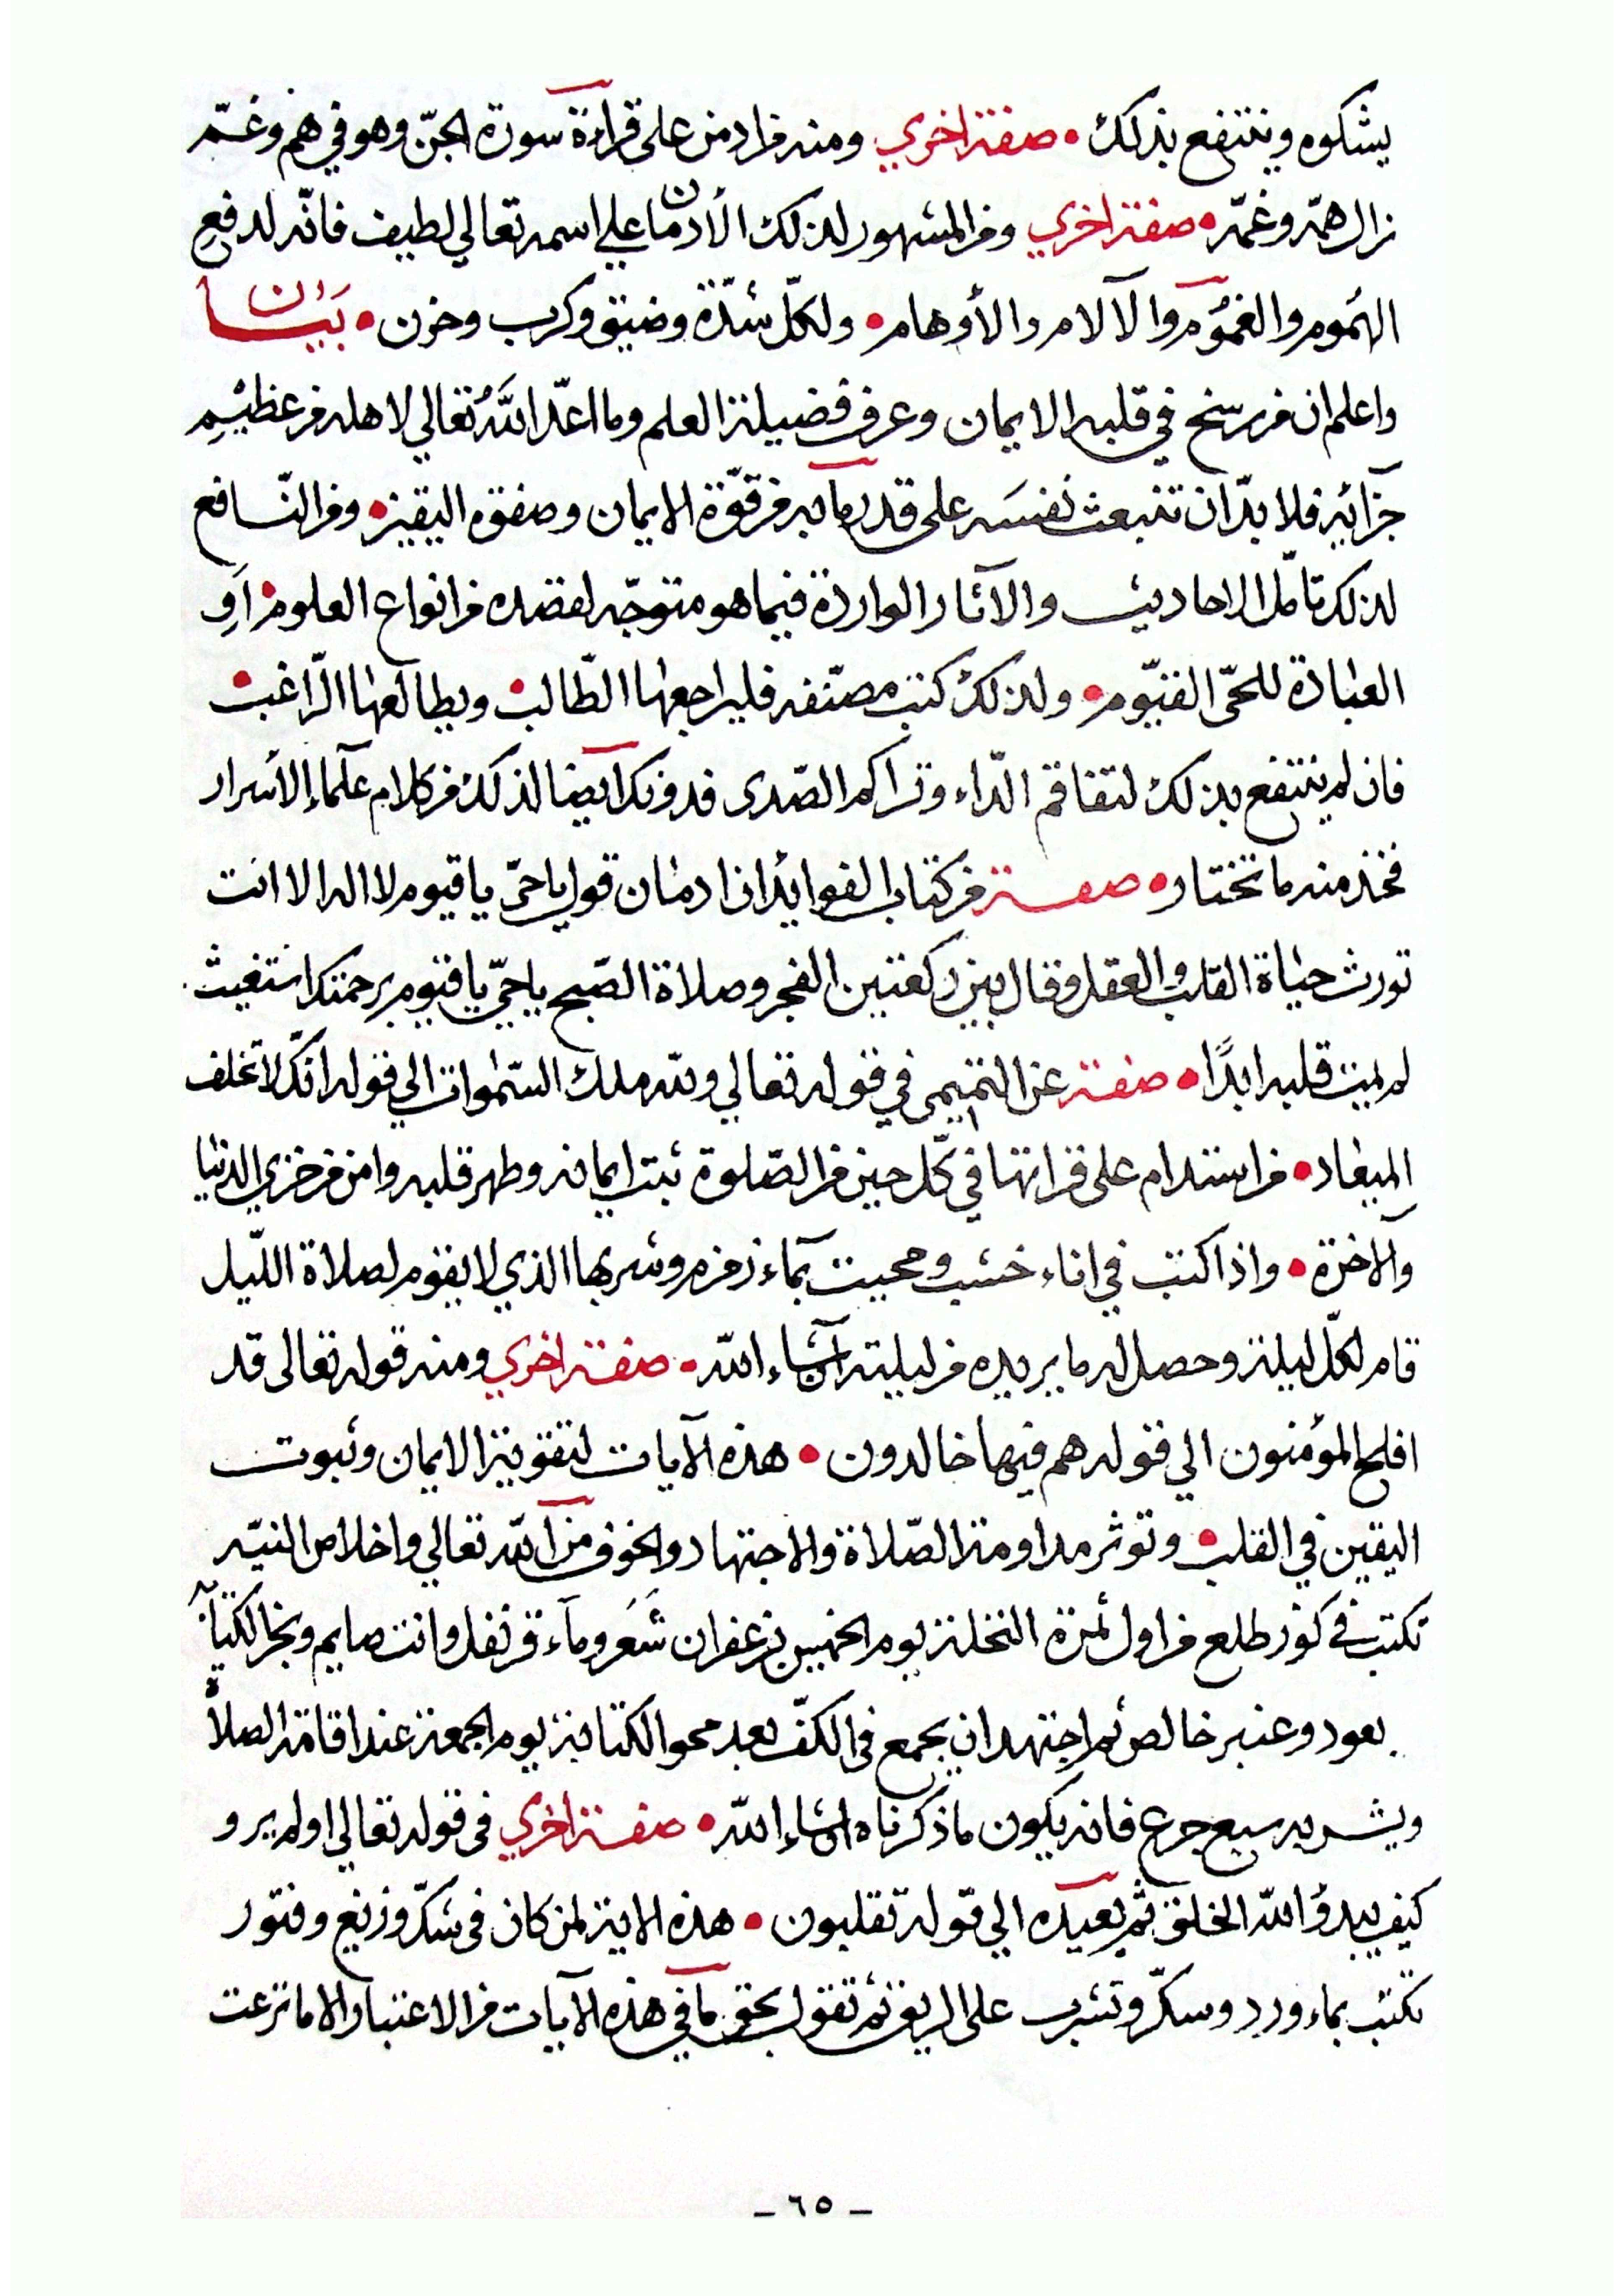 يشكوه وينتفع بذلك • صفة اخري ومنه فراد من على قراءة سورة الجنّ وهو في هم وغمّ
زال همّه وغمّه • صفة اخري ومن المشهور لذلك الأدمان علي اسمه تعالي لطيف فانّه لدفع
الهموم والغموم والآلام والأوهام • ولكلّ شدّة وضيق وكرب وحزن • بيان
واعلم ان من رسخ في قلبه الايمان وعرف فضيلة العلم وما اعدّ اللّٰه تعالي لاهله من عظيم
جزآئه فلا بدّ ان تنبعث نفسه على قدر ما به من قوّة الايمان وصفوة اليقين • ومن النّافع
لذلك تامّل الاحاديث والآثار الواردة فيما هو متوجّه لقصده من انواع العلوم • او
العبادة للحيّ القيّوم • ولذلك كتب مصنّفه فليراجعها الطّالب • ويطالعها الرّاغب •
فان لم ينتفع بذلك لتفاقم الدّاء وتراكم الصّدى فدونك ايضا لذلك من كلام علماء الأسرار
فخذ منه ما تختار • صفة من كتاب الفوايد ان ادمان قول يا حيّ يا قيوم لا اله الا انت
تورث حياة القلب والعقل وقال بين ركعتين الفجر وصلاة الصّبح يا حيّ يا قيوم برحمتك استغيث
لم يمت قلبه ابدًا • صفة عن التميمي في قوله تعالي وللّه ملك السّموات الي قوله انّك لا تخلف
الميعاد • من استدام على قرائتها في كلّ حين من الصّلوة ثبت ايمانه وطهر قلبه وامن من خزي الدنيا
والاخرة • واذا كتب في اناء خشب ومحيت بماء زمزم وشربها الذي لا يقوم لصلاة اللّيل
قام لكلّ ليلة وحصل له ما يريده من ليلته ان شاء اللّه • صفة اخري ومنه قوله تعالى قد
افلح المؤمنون الي قوله هم فيها خالدون • هذه الآيات لتقوية الايمان وثبوت
اليقين في القلب • وتوثر مداومة الصّلاة والاجتهاد والخوف من اللّه تعالي واخلاص النيّه
تكتب في كوز طلع من اول ثمرة النخلة يوم الخميس بزعفران شعر وماء قرنفل وانت صايم وبخر الكتابة
بعود وعنبر خالص ثم اجتهد ان يجمع في الكفّ بعد محو الكتابة يوم الجمعة عند اقامة الصلاة
ويشربه سبع جرع فانه يكون ما ذكرناه ان شاء اللّه • صفة اخري في قوله تعالي اولم يرو
كيف يبدؤ اللّه الخلق ثم يعيده الي قوله تقلبون • هذه الاية لمن كان في شكّ وزيغ وفتور
تكتب بماء ورد وسكّر وتشرب على الريق ثم تقول بحق ما في هذه الآيات من الاعتبار الا ما نزعت
- ٦٥ -